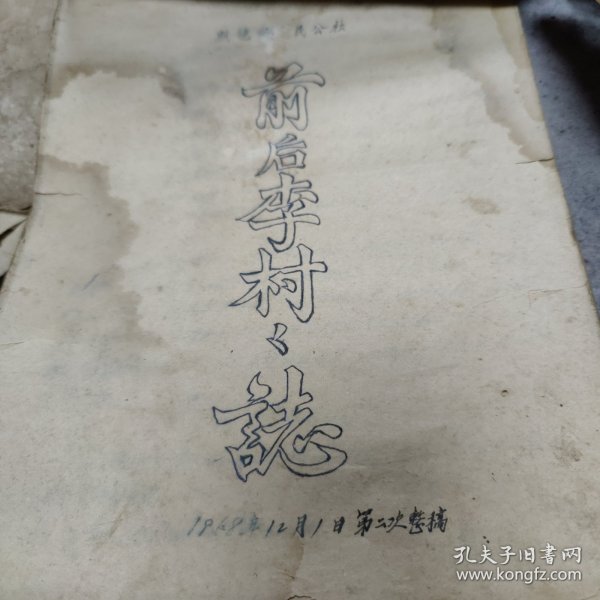 民公社
前后李村〻誌
12月1日第二次整稿
孔夫子旧书网
www.kongfz.com